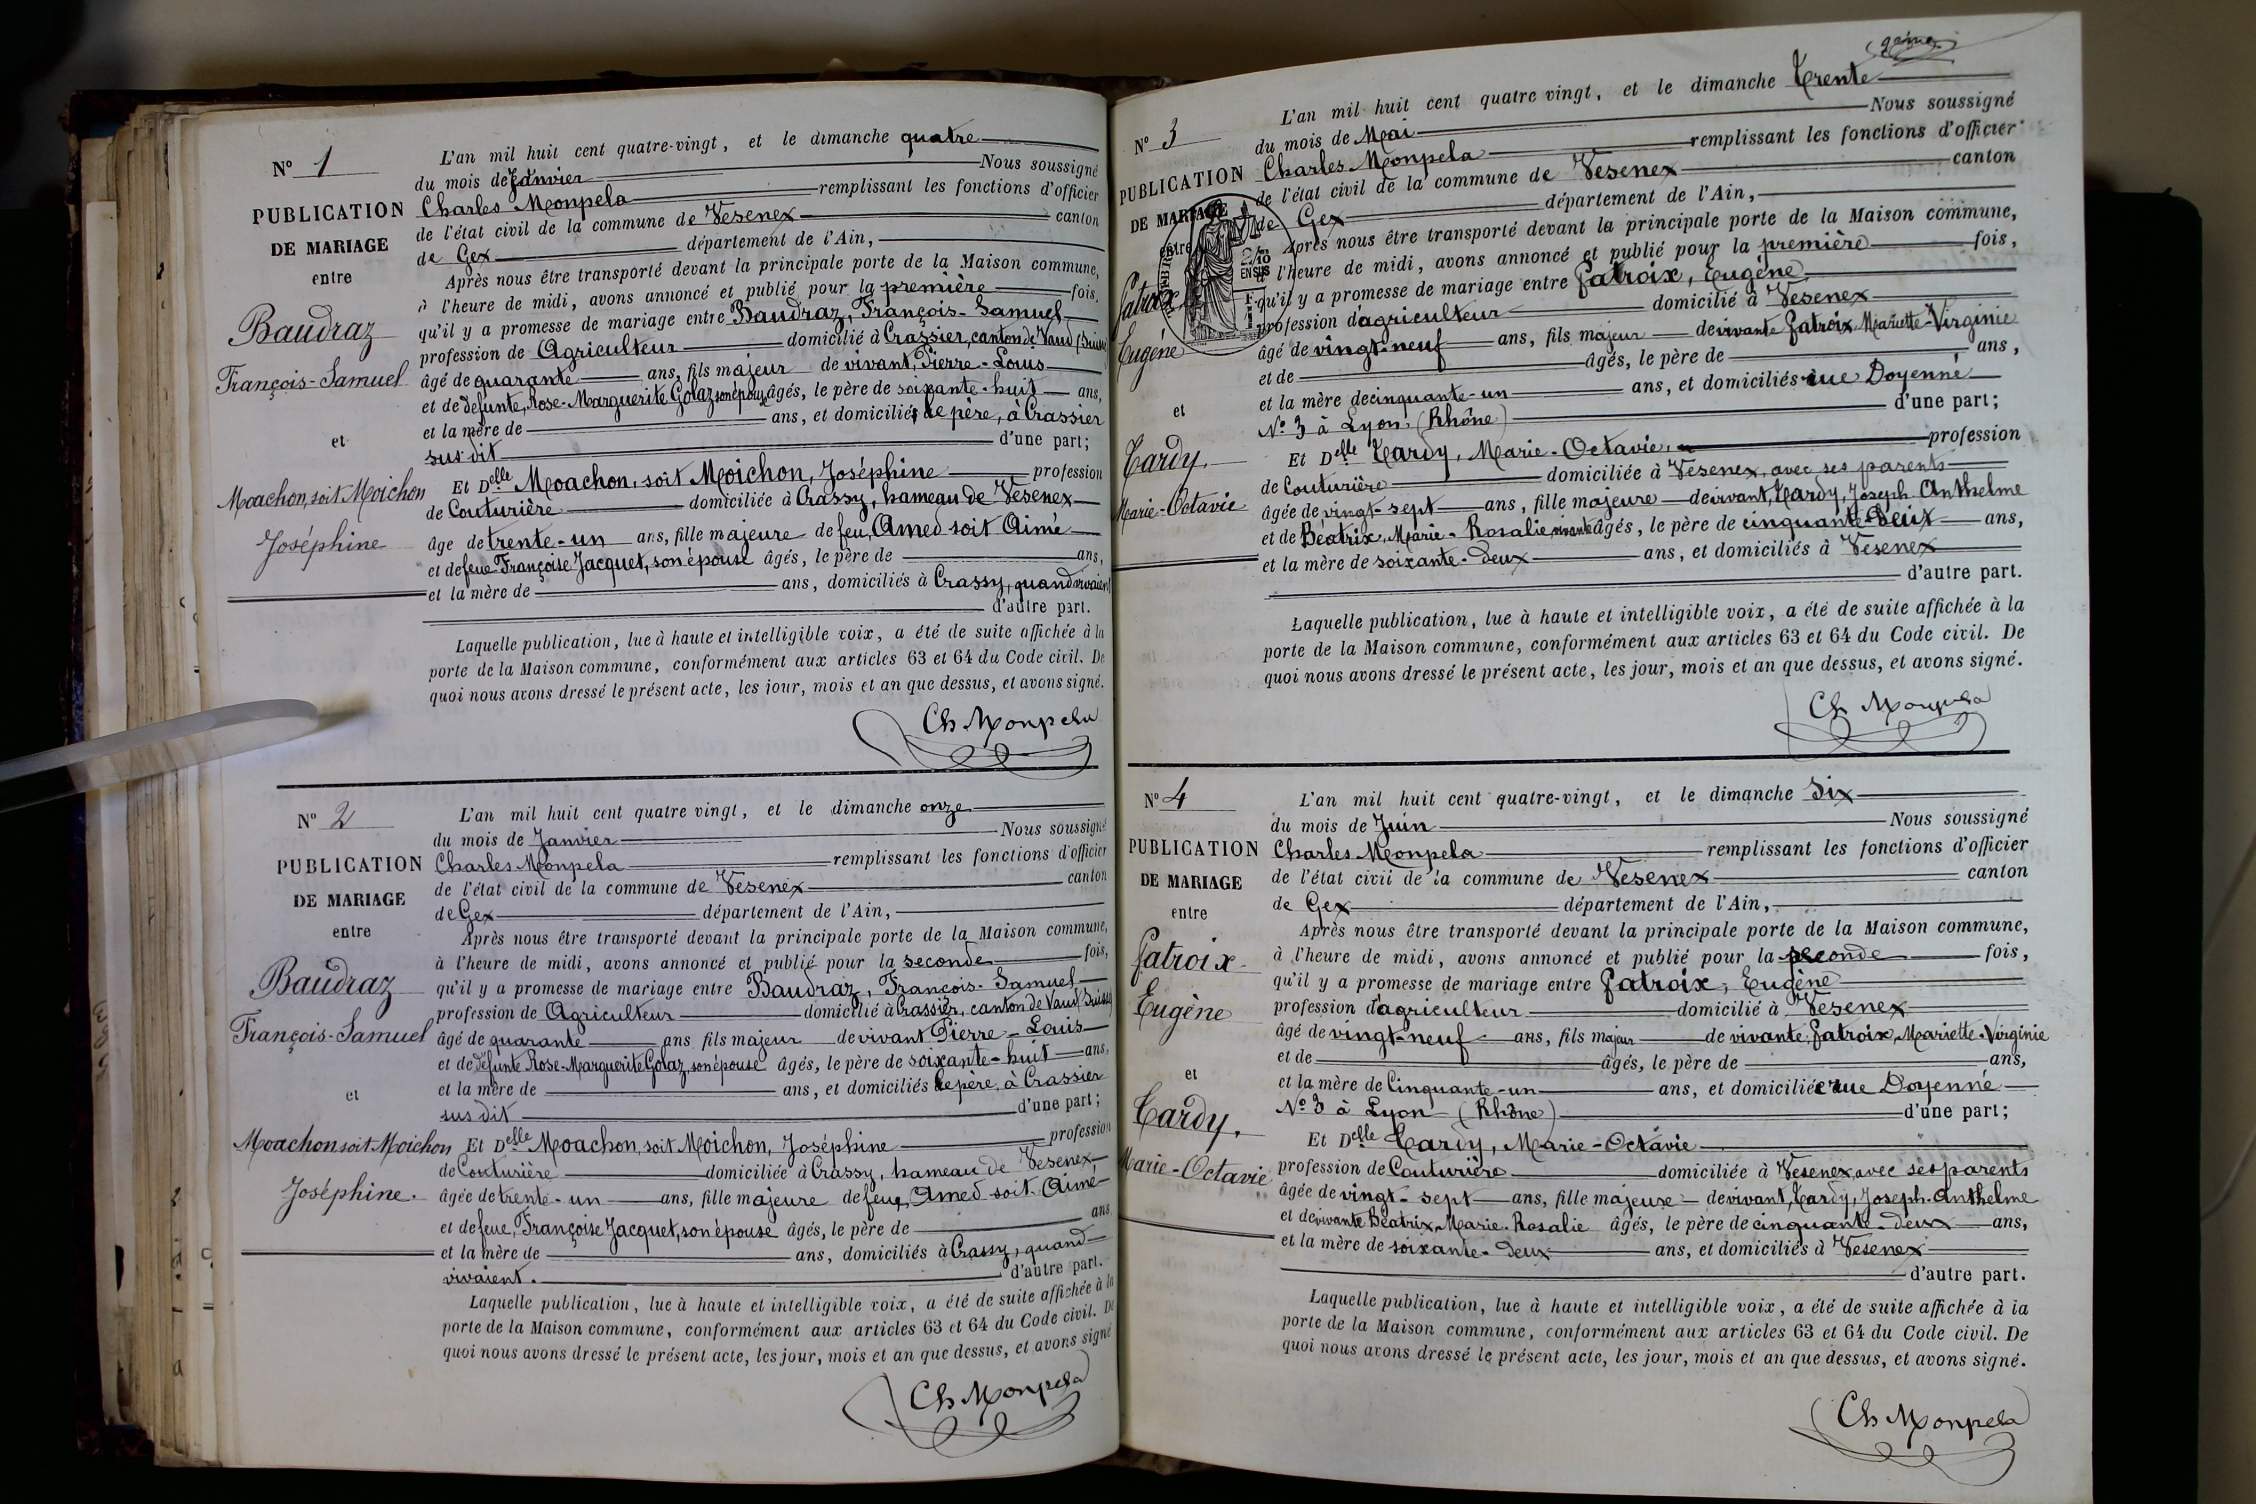 N° 1
PUBLICATION
DE MARIAGE
entre
Baudraz
François-Samuel
et
Moachon, soit Moichon
Joséphine
L'an mil huit cent quatre-vingt, et le dimanche quatre
du mois de Janvier Nous soussigné
Charles Monpela remplissant les fonctions d'officier
de l'état civil de la commune de Vesenex canton
de Gex département de l'Ain,
Après nous être transporté devant la principale porte de la Maison commune,
à l'heure de midi, avons annoncé et publié pour la première fois,
qu'il y a promesse de mariage entre Baudraz, François-Samuel
profession de Agriculteur domicilié à Crassier, canton de Vaud (Suisse)
âgé de quarante ans, fils majeur de vivant, Pierre-Louis
et de défunte, Rose-Marguerite Golaz son épouse âgés, le père de soixante-huit ans,
et la mère de ans, et domiciliés le père, à Crassier
sus dit d'une part;
Et Delle Moachon, soit Moichon, Joséphine profession
de Couturière domiciliée à Crassy, hameau de Vesenex
âge de trente-un ans, fille majeure de feu, Amed soit Aimé
et de feue Françoise Jacquet, son épouse âgés, le père de ans,
et la mère de ans, domiciliés à Crassy, quand vivaient
d'autre part.
Laquelle publication, lue à haute et intelligible voix, a été de suite affichée à la
porte de la Maison commune, conformément aux articles 63 et 64 du Code civil. De
quoi nous avons dressé le présent acte, les jour, mois et an que dessus, et avons signé.
Ch Monpela
N° 2
PUBLICATION
DE MARIAGE
entre
Baudraz
François-Samuel
et
Moachon soit Moichon
Joséphine.
L'an mil huit cent quatre vingt, et le dimanche onze
du mois de Janvier Nous soussigné
Charles Monpela remplissant les fonctions d'officier
de l'état civil de la commune de Vesenex canton
de Gex département de l'Ain,
Après nous être transporté devant la principale porte de la Maison commune,
à l'heure de midi, avons annoncé et publié pour la seconde fois,
qu'il y a promesse de mariage entre Baudraz, François-Samuel
profession de Agriculteur domicilié à Crassier, canton de Vaud (Suisse)
âgé de quarante ans fils majeur de vivant Pierre-Louis
et de défunte Rose-Marguerite Golaz, son épouse âgés, le père de soixante-huit ans,
et la mère de ans, et domiciliés le père, à Crassier
sus dit d'une part;
Et Delle Moachon, soit Moichon, Joséphine profession
de Couturière domiciliée à Crassy, hameau de Vesenex,
âgée de trente-un ans, fille majeure de feu, Amed soit Aimé
et de feue, Françoise Jacquet, son épouse âgés, le père de ans
et la mère de ans, domiciliés à Crassy, quand
vivaient. d'autre part.
Laquelle publication, lue à haute et intelligible voix, a été de suite affichée à la
porte de la Maison commune, conformément aux articles 63 et 64 du Code civil. De
quoi nous avons dressé le présent acte, les jour, mois et an que dessus, et avons signé
Ch Monpela
N° 3
PUBLICATION
DE MARIAGE
entre
Patroix
Eugène
et
Tardy.
Marie-Octavie
L'an mil huit cent quatre vingt, et le dimanche Trente
du mois de Mai Nous soussigné
Charles Monpela remplissant les fonctions d'officier
de l'état civil de la commune de Vesenex canton
de Gex département de l'Ain,
Après nous être transporté devant la principale porte de la Maison commune,
à l'heure de midi, avons annoncé et publié pour la première fois,
qu'il y a promesse de mariage entre Patroix, Eugène
profession d'agriculteur domicilié à Vesenex
âgé de vingt-neuf ans, fils majeur de vivante Patroix Mariette-Virginie
et de âgés, le père de ans,
et la mère de cinquante-un ans, et domiciliés rue Doyenné
N° 3 à Lyon (Rhône) d'une part;
Et Delle Tardy, Marie-Octavie. profession
de Couturière domiciliée à Vesenex, avec ses parents
âgée de vingt-sept ans, fille majeure de vivant, Tardy, Joseph Anthelme
et de Béatrix, Marie-Rosalie, vivante âgés, le père de cinquante-deux ans,
et la mère de soixante-deux ans, et domiciliés à Vesenex
d'autre part.
Laquelle publication, lue à haute et intelligible voix, a été de suite affichée à la
porte de la Maison commune, conformément aux articles 63 et 64 du Code civil. De
quoi nous avons dressé le présent acte, les jour, mois et an que dessus, et avons signé.
Ch Monpela
N° 4
PUBLICATION
DE MARIAGE
entre
Patroix
Eugène
et
Tardy,
Marie-Octavie
L'an mil huit cent quatre-vingt, et le dimanche Six
du mois de Juin Nous soussigné
Charles Monpela remplissant les fonctions d'officier
de l'état civil de la commune de Vesenex canton
de Gex département de l'Ain,
Après nous être transporté devant la principale porte de la Maison commune,
à l'heure de midi, avons annoncé et publié pour la seconde fois,
qu'il y a promesse de mariage entre Patroix, Eugène
profession d'agriculteur domicilié à Vesenex
âgé de vingt-neuf ans, fils majeur de vivante, Patroix, Mariette-Virginie
et de âgés, le père de ans,
et la mère de Cinquante-un ans, et domiciliée rue Doyenné
N° 3 à Lyon (Rhône) d'une part;
Et Delle Tardy, Marie-Octavie
profession de Couturière domiciliée à Vesenex avec ses parents
âgée de vingt-sept ans, fille majeure de vivant, Tardy, Joseph-Anthelme
et de vivante Béatrix, Marie-Rosalie âgés, le père de cinquante-deux ans,
et la mère de soixante-deux ans, et domiciliés à Vesenex
d'autre part.
Laquelle publication, lue à haute et intelligible voix, a été de suite affichée à la
porte de la Maison commune, conformément aux articles 63 et 64 du Code civil. De
quoi nous avons dressé le présent acte, les jour, mois et an que dessus, et avons signé.
Ch Monpela